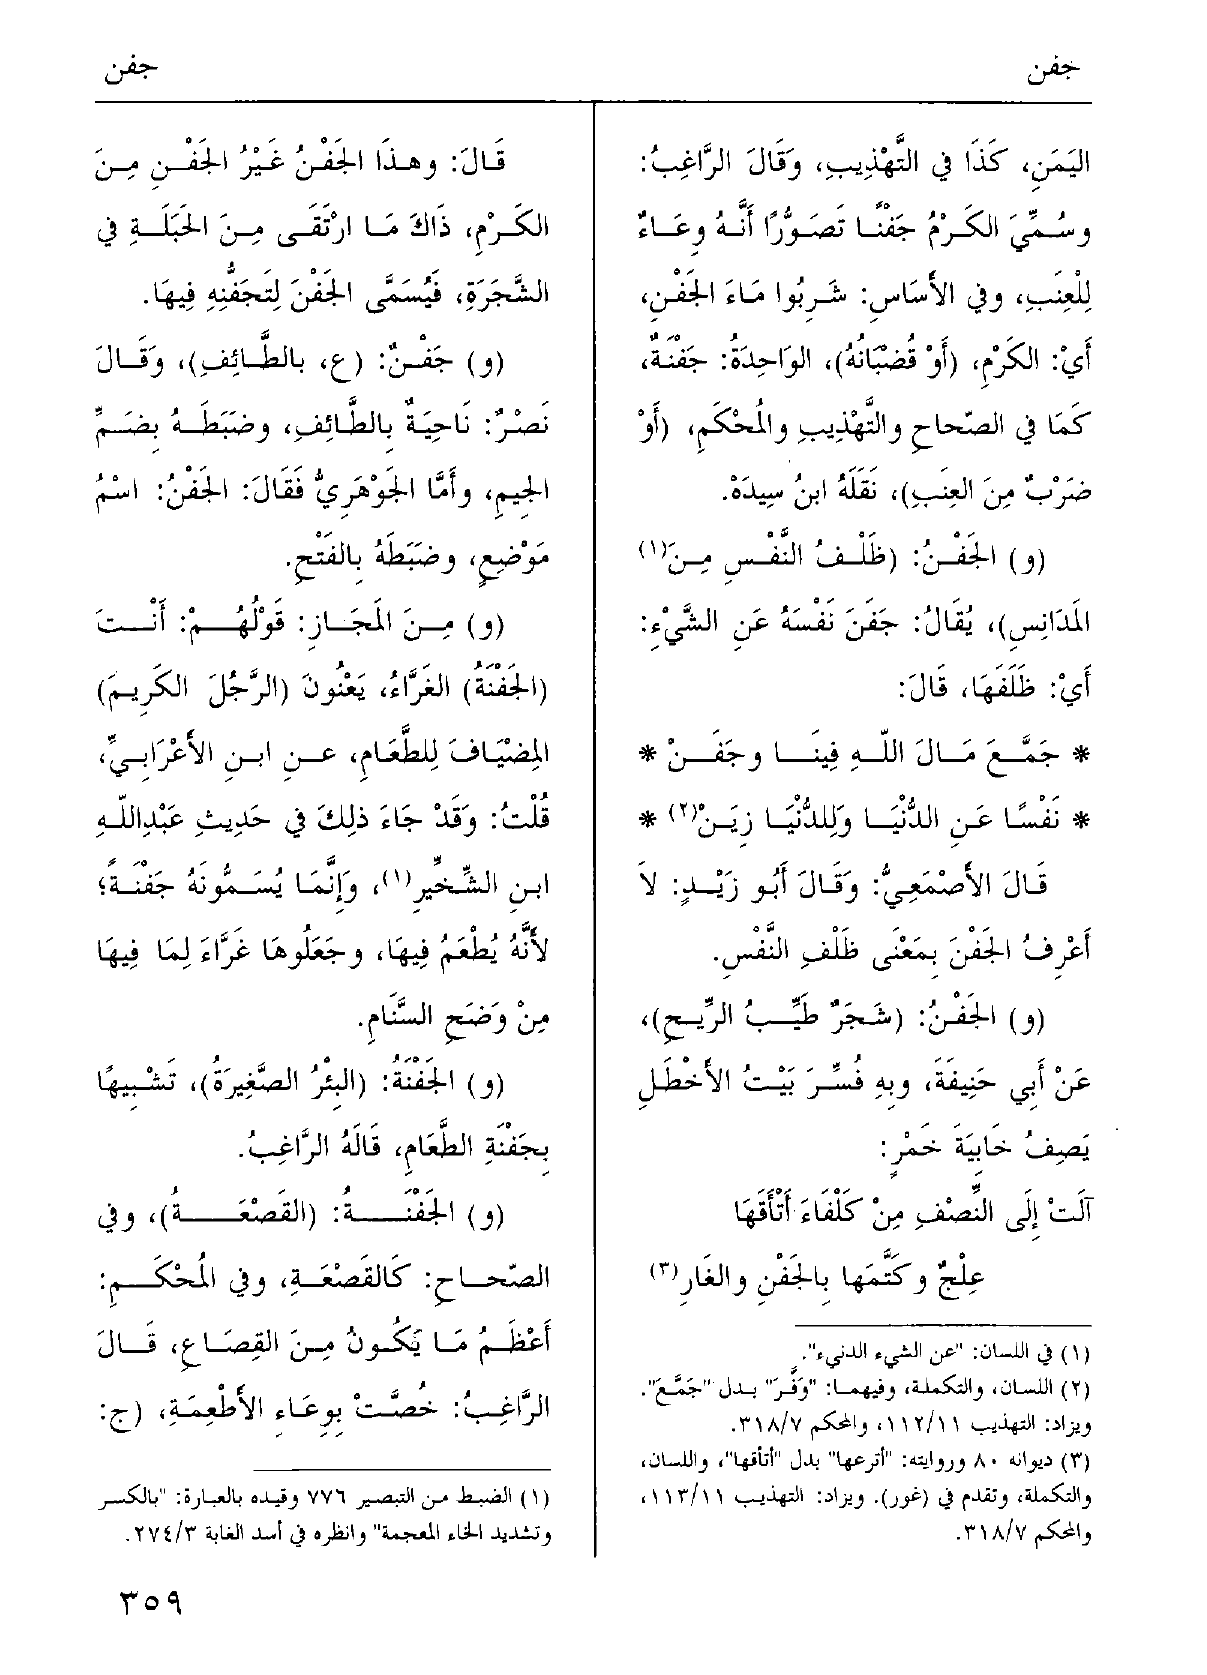 جفن
جفن
اليَمَنِ، كَذَا في التَّهْذِيبِ، وقَالَ الرَّاغِبُ:
وسُمِّيَ الكَرْمُ جَفْنًا تَصَوُّرًا أَنَّهُ وِعَاءٌ
لِلْعِنَبِ، وفي الأَسَاسِ: شَرِبُوا مَاءَ الجَفْنِ،
أَيْ: الكَرْمِ، (أَوْ قُضْبَانُهُ)، الوَاحِدَةُ: جَفْنَةٌ،
كَمَا في الصِّحاحِ والتَّهْذِيبِ والمُحْكَمِ، (أَوْ
ضَرْبٌ مِنَ العِنَبِ)، نَقَلَهُ ابنُ سِيدَهْ.
(و) الجَفْنُ: (ظَلْفُ النَّفْسِ مِنَ(١)
المَدَانِسِ)، يُقَالُ: جَفَنَ نَفْسَهُ عَنِ الشَّيْءِ:
أَيْ: ظَلَفَهَا، قَالَ:
* جَمَّعَ مَالَ اللهِ فِينَا وجَفَنْ *
* نَفْسًا عَنِ الدُّنْيَا ولِلدُّنْيَا زِيَنْ(٢) *
قَالَ الأَصْمَعِيُّ: وَقَالَ أَبُو زَيْدٍ: لَا
أَعْرِفُ الجَفْنَ بِمَعْنَى ظَلْفِ النَّفْسِ.
(و) الجَفْنُ: (شَجَرٌ طَيِّبُ الرِّيحِ)،
عَنْ أَبِي حَنِيفَةَ، وبِهِ فُسِّرَ بَيْتُ الأَخْطَلِ
يَصِفُ خَابِيَةَ خَمْرٍ:
آلَتْ إِلَى النِّصْفِ مِنْ كَلْفَاءَ أَتْأَقَهَا
عِلْجٌ وكَتَّمَهَا بِالجَفْنِ والغَارِ(٣)
(١) في اللسان: "عن الشيء الدنيء".
(٢) اللسان، والتكملة، وفيهما: "وَفَّرَ" بدل "جَمَّعَ".
ويزاد: التهذيب ١١٢/١١، والمحكم ٣١٨/٧.
(٣) ديوانه ٨٠ وروايته: "أترعها" بدل "أتأقها"، واللسان،
والتكملة، وتقدم في (غور). ويزاد: التهذيب ١١٣/١١،
والمحكم ٣١٨/٧.
قَالَ: وهذَا الجَفْنُ غَيْرُ الجَفْنِ مِنَ
الكَرْمِ، ذَاكَ مَا ارْتَقَى مِنَ الحَبَلَةِ في
الشَّجَرَةِ، فَيُسَمَّى الجَفْنَ لِتَجَفُّنِهِ فِيهَا.
(و) جَفْنٌ: (ع، بالطَّائِفِ)، وَقَالَ
نَصْرٌ: نَاحِيَةٌ بِالطَّائِفِ، وضَبَطَهُ بِضَمِّ
الجِيمِ، وأَمَّا الجَوْهَرِيُّ فَقَالَ: الجَفْنُ: اسْمُ
مَوْضِعٍ، وضَبَطَهُ بِالفَتْحِ.
(و) مِنَ المَجَازِ: قَوْلُهُمْ: أَنْتَ
(الجَفْنَةُ) الغَرَّاءُ، يَعْنُونَ (الرَّجُلَ الكَرِيمَ)
المِضْيَافَ لِلطَّعَامِ، عن ابنِ الأَعْرَابِيِّ،
قُلْتُ: وَقَدْ جَاءَ ذلِكَ في حَدِيثِ عَبْدِاللهِ
ابنِ الشِّخِّيرِ(١)، وَإِنَّمَا يُسَمُّونَهُ جَفْنَةً؛
لأَنَّهُ يُطْعَمُ فِيهَا، وجَعَلُوهَا غَرَّاءَ لِمَا فِيهَا
مِنْ وَضَحِ السَّنَامِ.
(و) الجَفْنَةُ: (البِئْرُ الصَّغِيرَةُ)، تَشْبِيهًا
بِجَفْنَةِ الطَّعَامِ، قَالَهُ الرَّاغِبُ.
(و) الجَفْنَةُ: (القَصْعَةُ)، وفي
الصِّحاحِ: كَالقَصْعَةِ، وفي المُحْكَمِ:
أَعْظَمُ مَا يَكُونُ مِنَ القِصَاعِ، قَالَ
الرَّاغِبُ: خُصَّتْ بِوِعَاءِ الأَطْعِمَةِ، (ج:
(١) الضبط من التبصير ٧٧٦ وقيده بالعبارة: "بالكسر
وتشديد الخاء المعجمة" وانظره في أسد الغابة ٢٧٤/٣.
٣٥٩